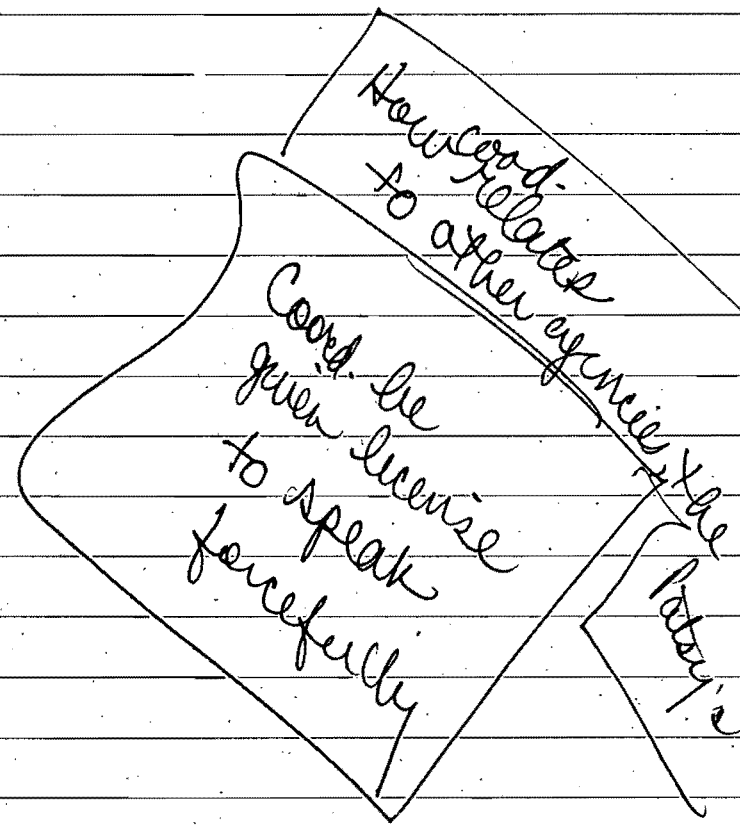 How coord.
relates
to other agencies the
Coord. be
given license
to speak
forcefully
Patsy's